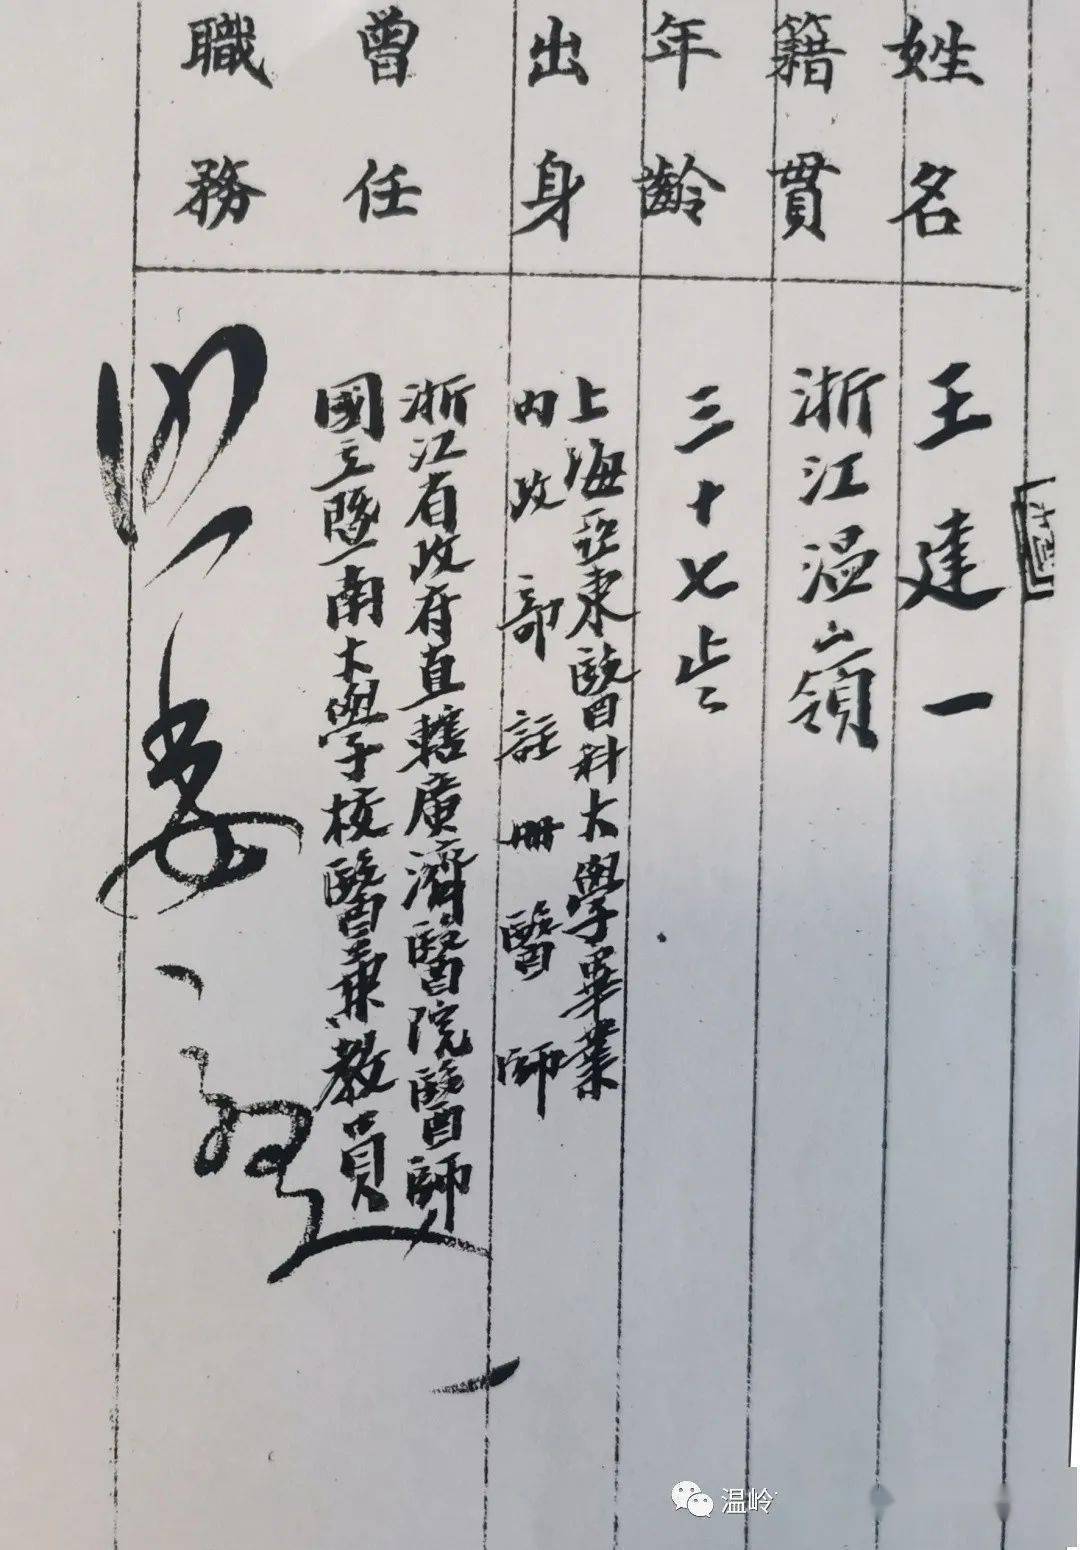 姓名
王建一
籍貫
浙江温嶺
年齡
三十七歲
出身
上海亞東醫科大學畢業
内政部註冊醫師
曾任
職務
浙江省政府直轄廣濟醫院醫師
國立暨南大學校醫兼教員
温岭